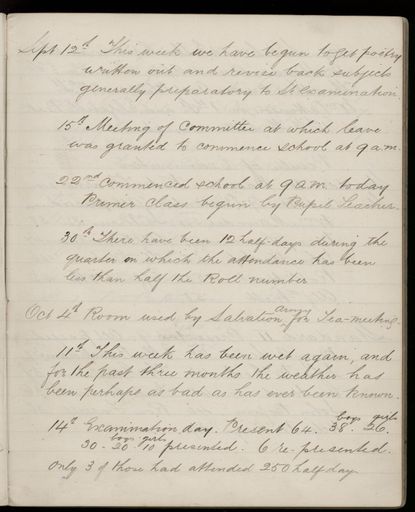 Sept 12th This week we have begun to get poetry
written out and revise back subjects
generally preparatory to St Examination
15th Meeting of Committee at which leave
was granted to commence school at 9 a.m.
22nd Commenced school at 9 a.m. today
Primer Class begun by Pupil Teacher.
30th There have been 12 half-days during the
quarter on which the attendance has been
less than half the Roll number
Army
Oct 4th Room used by Salvation for Tea-meeting.
11th This week has been wet again, and
for the past three months the weather has
been perhaps as bad as has ever been known.
boys girls
14th Examination day. Present 64. 38. 26.
boys girls
30 - 20 10 presented. 6 re-presented.
Only 3 of those had attended 250 half days